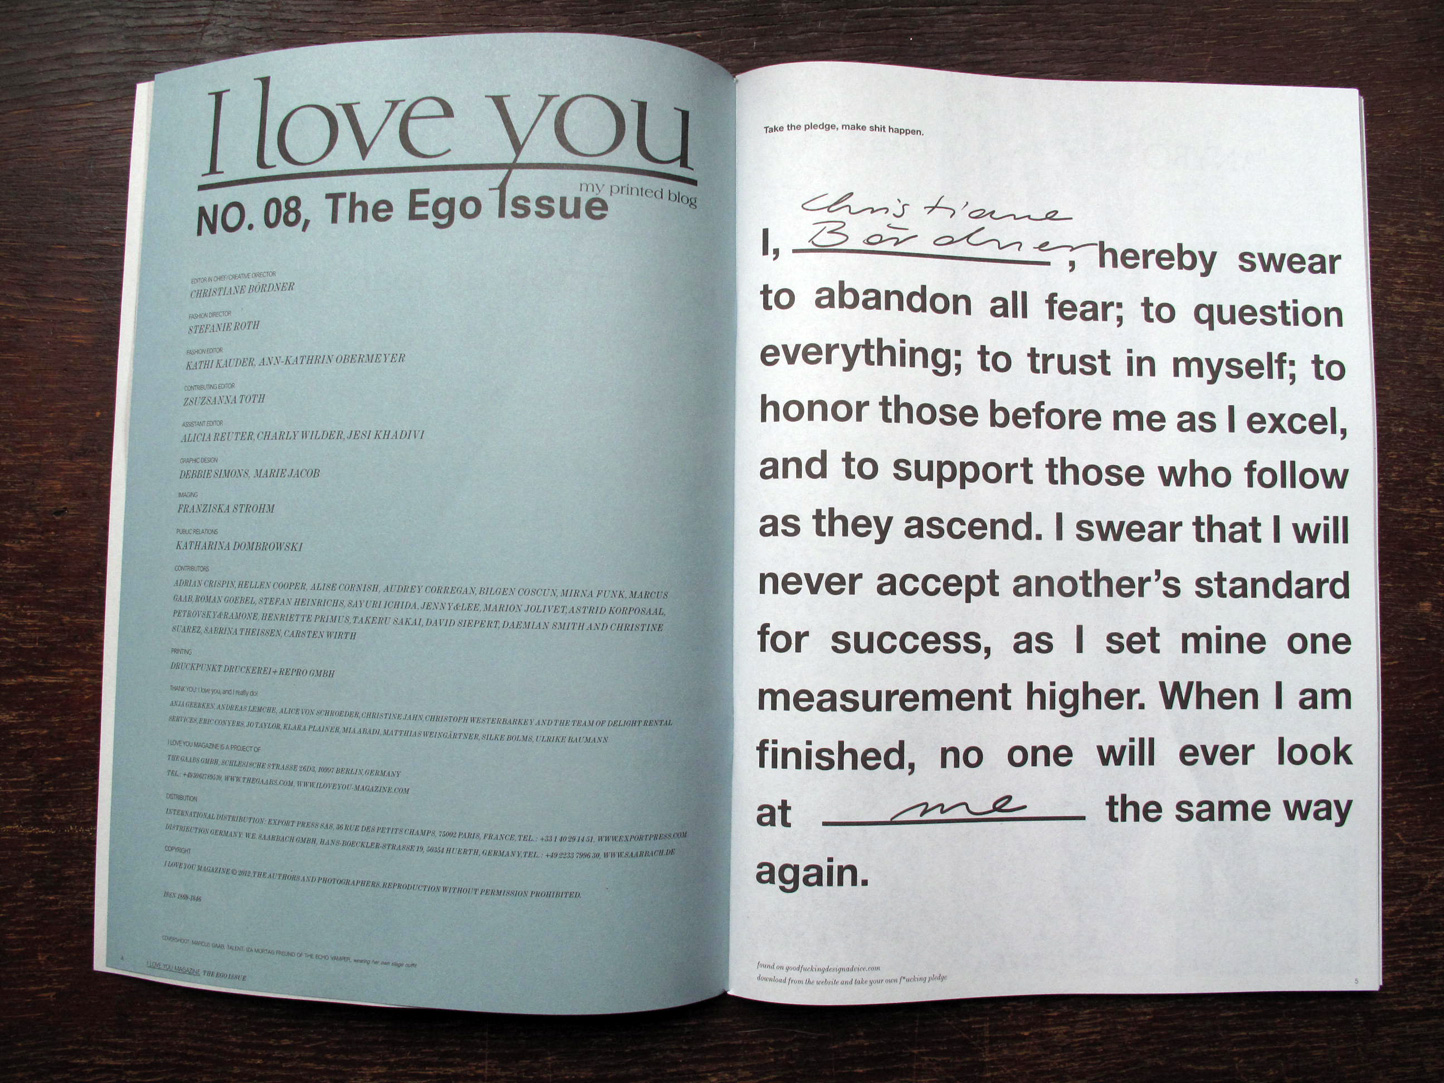 I love you
my printed blog
NO. 08, The Ego Issue
EDITOR IN CHIEF/CREATIVE DIRECTOR
CHRISTIANE BÖRDNER
FASHION DIRECTOR
STEFANIE ROTH
FASHION EDITOR
KATHI KAUDER, ANN-KATHRIN OBERMEYER
CONTRIBUTING EDITOR
ZSUZSANNA TOTH
ASSISTANT EDITOR
ALICIA REUTER, CHARLY WILDER, JESI KHADIVI
GRAPHIC DESIGN
DEBBIE SIMONS, MARIE JACOB
IMAGING
FRANZISKA STROHM
PUBLIC RELATIONS
KATHARINA DOMBROWSKI
CONTRIBUTORS
ADRIAN CRISPIN, HELLEN COOPER, ALISE CORNISH, AUDREY CORREGAN, BILGEN COSCUN, MIRNA FUNK, MARCUS
GAAB, ROMAN GOEBEL, STEFAN HEINRICHS, SAYURI ICHIDA, JENNY&LEE, MARION JOLIVET, ASTRID KORPOSAAL,
PETROVSKY&RAMONE, HENRIETTE PRIMUS, TAKERU SAKAI, DAVID SIEPERT, DAEMIAN SMITH AND CHRISTINE
SUAREZ, SABRINA THEISSEN, CARSTEN WIRTH
PRINTING
DRUCKPUNKT DRUCKEREI + REPRO GMBH
THANK YOU! I love you, and I really do!
ANJA GEERKEN, ANDREAS LEMCHE, ALICE VON SCHROEDER, CHRISTINE JAHN, CHRISTOPH WESTERBARKEY AND THE TEAM OF DELIGHT RENTAL
SERVICES, ERIC CONYERS, JO TAYLOR, KLARA PLAINER, MIA ABADI, MATTHIAS WEINGÄRTNER, SILKE BOLMS, ULRIKE BAUMANN
I LOVE YOU MAGAZINE IS A PROJECT OF
THE GAABS GMBH, SCHLESISCHE STRASSE 26D3, 10997 BERLIN, GERMANY
TEL.: WWW.THEGAABS.COM, WWW.ILOVEYOU-MAGAZINE.COM
DISTRIBUTION
INTERNATIONAL DISTRIBUTION: EXPORT PRESS SAS, 36 RUE DES PETITS CHAMPS, 75002 PARIS, FRANCE, TEL.: +33 1 40 29 14 51, WWW.EXPORTPRESS.COM
DISTRIBUTION GERMANY: W.E. SAARBACH GMBH, HANS-BOECKLER-STRASSE 19, 50354 HUERTH, GERMANY, TEL.: +49 2233 7996 30, WWW.SAARBACH.DE
COPYRIGHT
I LOVE YOU MAGAZINE © 2012, THE AUTHORS AND PHOTOGRAPHERS. REPRODUCTION WITHOUT PERMISSION PROHIBITED.
ISSN
COVERSHOOT: MARCUS GAAB, TALENT: OF THE ECHO VAMPER, wearing her own stage outfit
I LOVE YOU MAGAZINE, THE EGO ISSUE
Take the pledge, make shit happen.
Christiane
I, Bördner, hereby swear
to abandon all fear; to question
everything; to trust in myself; to
honor those before me as I excel,
and to support those who follow
as they ascend. I swear that I will
never accept another’s standard
for success, as I set mine one
measurement higher. When I am
finished, no one will ever look
at me the same way
again.
found on goodfuckingdesignadvice.com
download from the website and take your own f*ucking pledge
5